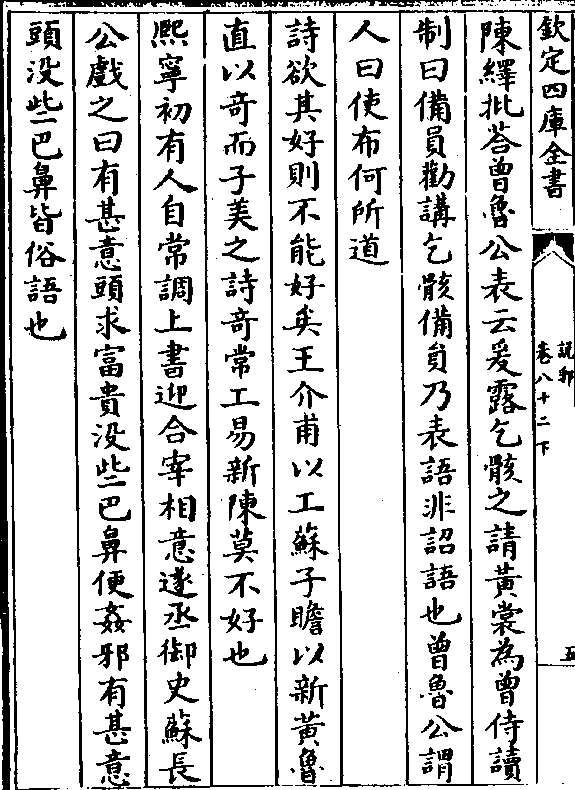 欽定四庫全書
說郛
卷八十二下
五
陳繹批荅曾魯公表云爰露乞骸之請黃裳為曾侍讀
制曰備員勸講乞骸備貟乃表語非詔語也曾魯公謂
人曰使布何所道
詩欲其好則不能好矣王介甫以工蘇子瞻以新黃魯
直以奇而子美之詩奇常工易新陳莫不好也
熙寧初有人自常調上書迎合宰相意遂丞御史蘇長
公戲之曰有甚意頭求富貴没些巴鼻便姦邪有甚意
頭没些巴鼻皆俗語也